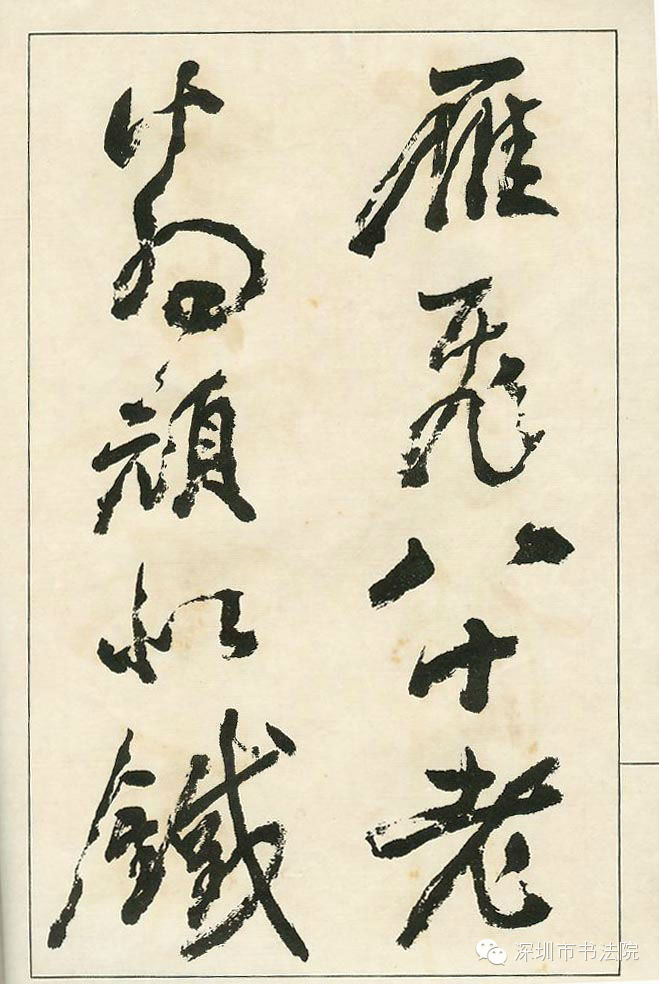 雁飛八十老
翁頑似鐵
深圳市书法院